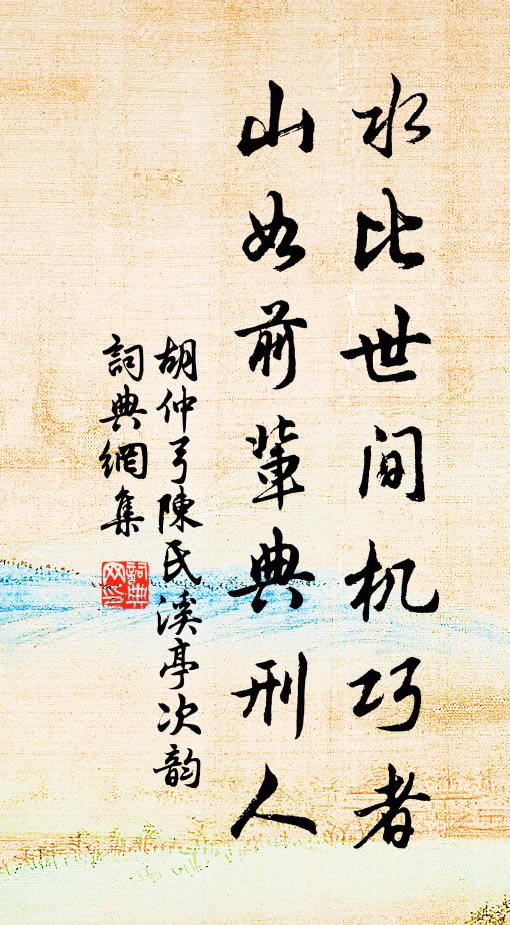 水比世间机巧者
山如前辈典刑人
胡仲弓陳民溪亭次韵
詞典網集
詞典